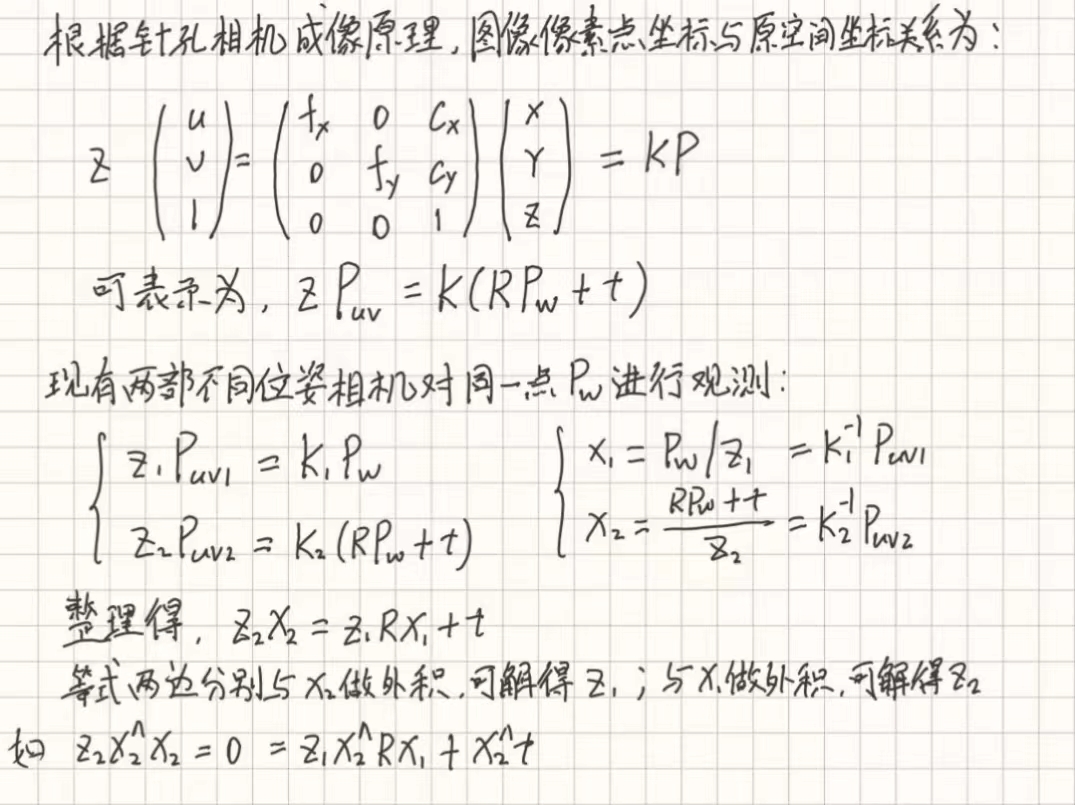 根据针孔相机成像原理，图像像素点坐标与原空间坐标关系为：
Z (u v 1) = (fx 0 Cx 0 fy Cy 0 0 1) (X Y Z) = KP
可表示为，Z P_uv = K(RP_w + t)
现有两部不同位姿相机对同一点P_w进行观测：
{ Z₁P_uv1 = K₁P_w { X₁ = P_w/Z₁ = K₁⁻¹P_uv1
Z₂P_uv2 = K₂(RP_w + t) X₂ = (RP_w + t)/Z₂ = K₂⁻¹P_uv2
整理得，Z₂X₂ = Z₁RX₁ + t
等式两边分别与X₂做外积，可解得Z₁；与X₁做外积，可解得Z₂
如 Z₂X₂^X₂ = 0 = Z₁X₂^RX₁ + X₂^t